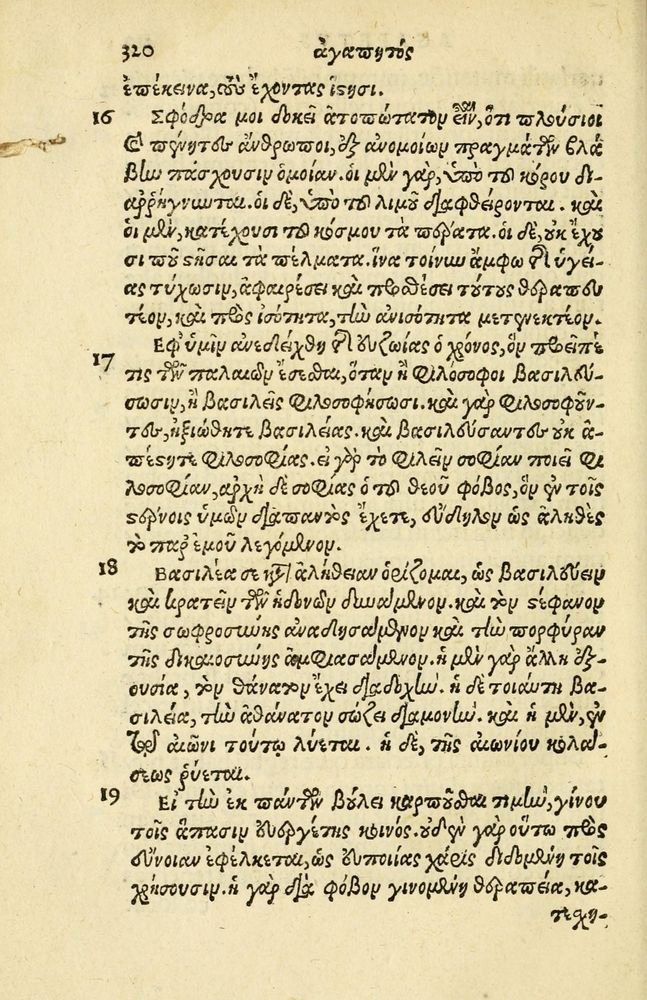 320 ἀγαπητός
ἐπέκεινα, τοὺ ἔχοντας ἵστησι.
16 Σφόδρα μοι δοκεῖ ἀτοπώτατον εἶναι, ὅτι πλούσιοι
καὶ πένητες ἄνθρωποι, ἐξ ἀνομοίων πραγμάτων βλά
βην πάσχουσιν ὁμοίαν. οἱ μὲν γὰρ, ὑπὸ τοῦ κόρου δι-
αρρήγνωται. οἱ δὲ, ὑπὸ τοῦ λιμοῦ διαφθείρονται. καὶ
οἱ μὲν, κατέχουσι τοῦ κόσμου τὰ πέρατα. οἱ δὲ, οὐκ ἔχου
σι ποῦ στῆσαι τὰ πέλματα. ἵνα τοίνυν ἄμφω τῆς ὑγεί-
ας τύχωσιν, ἀφαιρέσει καὶ προσθέσει τούτους θεραπευ
τέον, καὶ πρὸς ἰσότητα, τὴν ἀνισότητα μετενεκτέον.
17 Ἐφ' ὑμῖν ἀνεδείχθη τῆς εὐζωίας ὁ χρόνος, ὃν προεῖπέ
τις τῶν παλαιῶν ἔσεσθαι, ὅταν ἢ φιλόσοφοι βασιλεύ-
σωσιν, ἢ βασιλεῖς φιλοσοφήσωσι. καὶ γὰρ φιλοσοφοῦν-
τες, ἠξιώθητε βασιλείας. καὶ βασιλεύσαντες οὐκ ἀ-
πέστητε φιλοσοφίας. εἰ γὰρ τὸ φιλεῖν σοφίαν ποιεῖ φι
λοσοφίαν, ἀρχὴ δὲ σοφίας ὁ τοῦ θεοῦ φόβος, ὃν ἐν τοῖς
στέρνοις ὑμῶν διαπαντὸς ἔχετε, εὔδηλον ὡς ἀληθὲς
τὸ παρ' ἐμοῦ λεγόμενον.
18 Βασιλέα σε κατ' ἀλήθειαν ὁρίζομαι, ὡς βασιλεύειν
καὶ κρατεῖν τῶν ἡδονῶν δυνάμενον. καὶ τὸν στέφανον
τῆς σωφροσύνης ἀναδησάμενον καὶ τὴν πορφύραν
τῆς δικαιοσύνης ἀμφιασάμενον. ἡ μὲν γὰρ ἄλλη ἐξ-
ουσία, τὸν θάνατον ἔχει διαδοχήν. ἡ δὲ τοιαύτη βα-
σιλεία, τὴν ἀθάνατον σώζει διαμονήν. καὶ ἡ μὲν, ἐν
τῷ αἰῶνι τούτῳ λύεται. ἡ δὲ, τῆς αἰωνίου κολά-
σεως ῥύεται.
19 Εἰ τὴν ἐκ πάντων βούλει καρποῦσθαι τιμὴν, γίνου
τοῖς ἅπασιν εὐεργέτης κοινός. οὐδὲν γὰρ οὕτω πρὸς
εὔνοιαν ἐφέλκεται, ὡς εὐποιίας χάρις διδομένη τοῖς
χρήζουσιν. ἡ γὰρ διὰ φόβον γινομένη θεραπεία, κα-
τεχη-